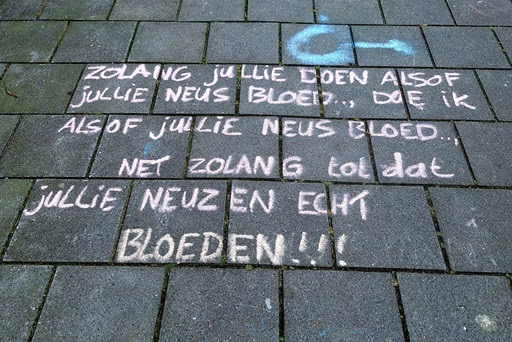 ZOLANG juLLIE DOEN ALSOF
juLLIE NEUS BLOED.., DOE ik
ALSOF juLLIE NEUS BLOED..,
NET ZOLANG tot dat
juLLIE NEUZEN ECHT
BLOEDEN!!!